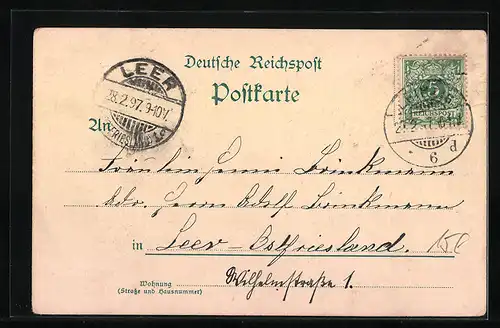 Deutsche Reichspost
Postkarte
LEER
28.2.97.9-10V.
An
5
REICHSPOST
d
Fräulein Henni Brinkmann
Adr. Herrn Adolf Brinkmann
in Leer-Ostfriesland.
Wohnung
(Straße und Hausnummer)
Wilhelmstraße 1.